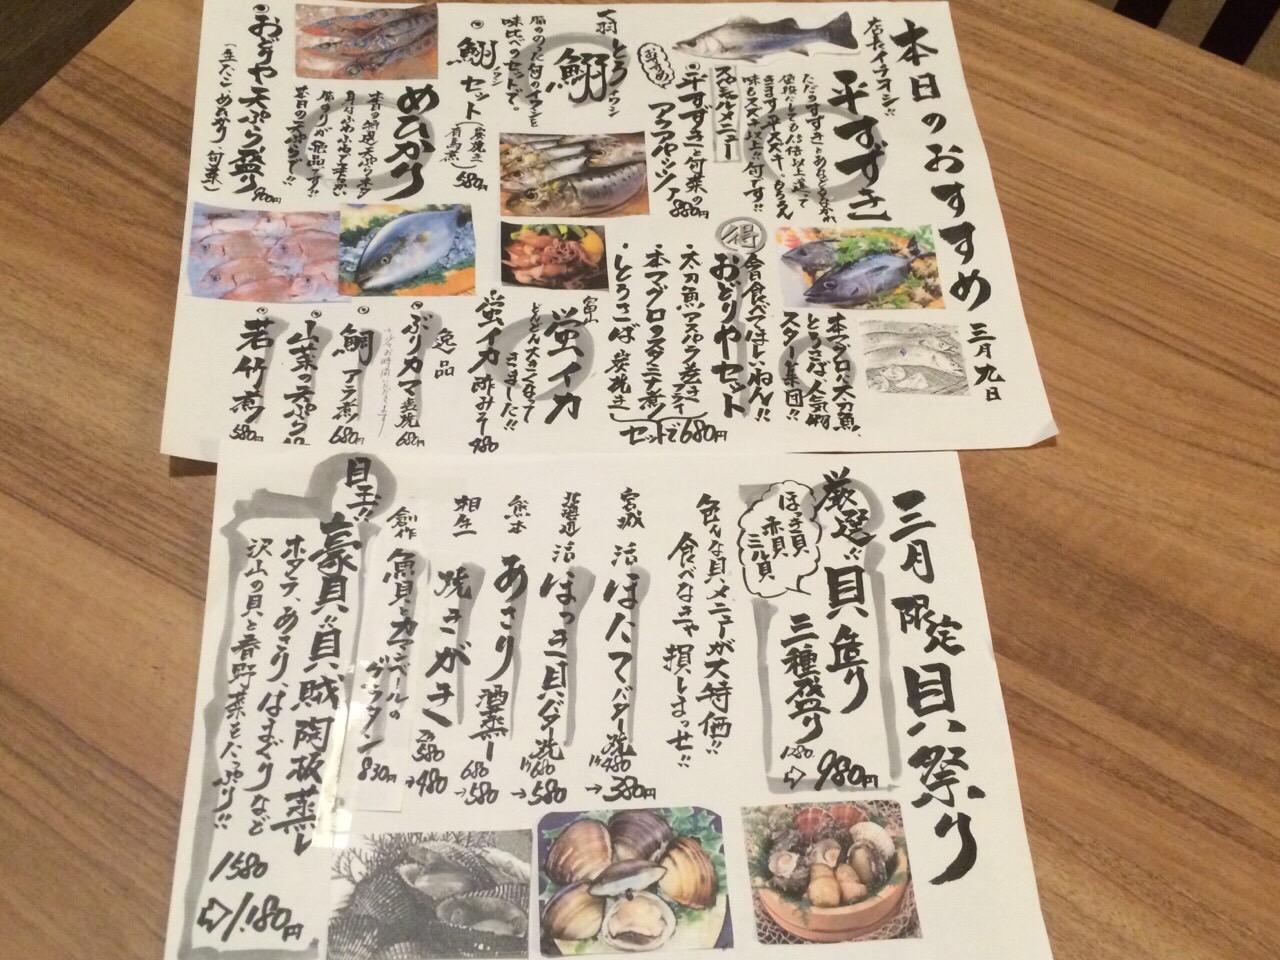 本日のおすすめ
三月九日
店長イチオシ!!
平すずき
ただのすずきとあなどるなかれ
値段にしても1.5倍以上違って
きます平スズキ。もちろん
味もスズキ以上!!旬です!!
スペシャルメニュー
おすすめ
平すずきと旬菜の
アクアパッツァ 880円
大羽とろイワシ
鰯
脂ののった旬のイワシを
味比べのセットで。
鰯セット
イワシ
(炭焼き
有馬煮)
580円
めひかり
本日の天ぷらで!!
おどりや天ぷら盛り
(生たこ めひかり 旬菜)
900円
本マグロ、太刀魚、
とろさば、人気の
スター集団!!
得
今日食べてほしいねん!!
おどりやセット
・太刀魚アスパラ巻きフライ
・本マグロのスタミナ煮
・とろさば 炭焼き
セットで680円
富山
蛍イカ
どんどん大きくなって
きました!!
蛍イカ 酢みそ
480
逸品
ぶりカマ 炭焼
680
鯛アラ煮
680
山菜の天ぷら
若竹煮
580円
三月限定 貝祭り
厳選!! 貝造り
三種盛り
1280 ⇨ 980円
ほっき貝
赤貝
ミル貝
色んな貝メニューが大特価!!
食べなきゃ 損しまっせ!!
宮城 活 ほたてバター焼
1ケ480
→380円
北海道 活 ほっき貝バター焼
1ケ680
→580
熊本 あさり 酒蒸し
680
→580
相生 焼きがき
2ケ580
→480
創作 魚貝とカマンベールの
グラタン
830円
目玉!!
豪貝!!貝賊陶板蒸し
ホタテ、あさり、はまぐりなど
沢山の貝と春野菜をたっぷり!!
1580
⇨1,180円